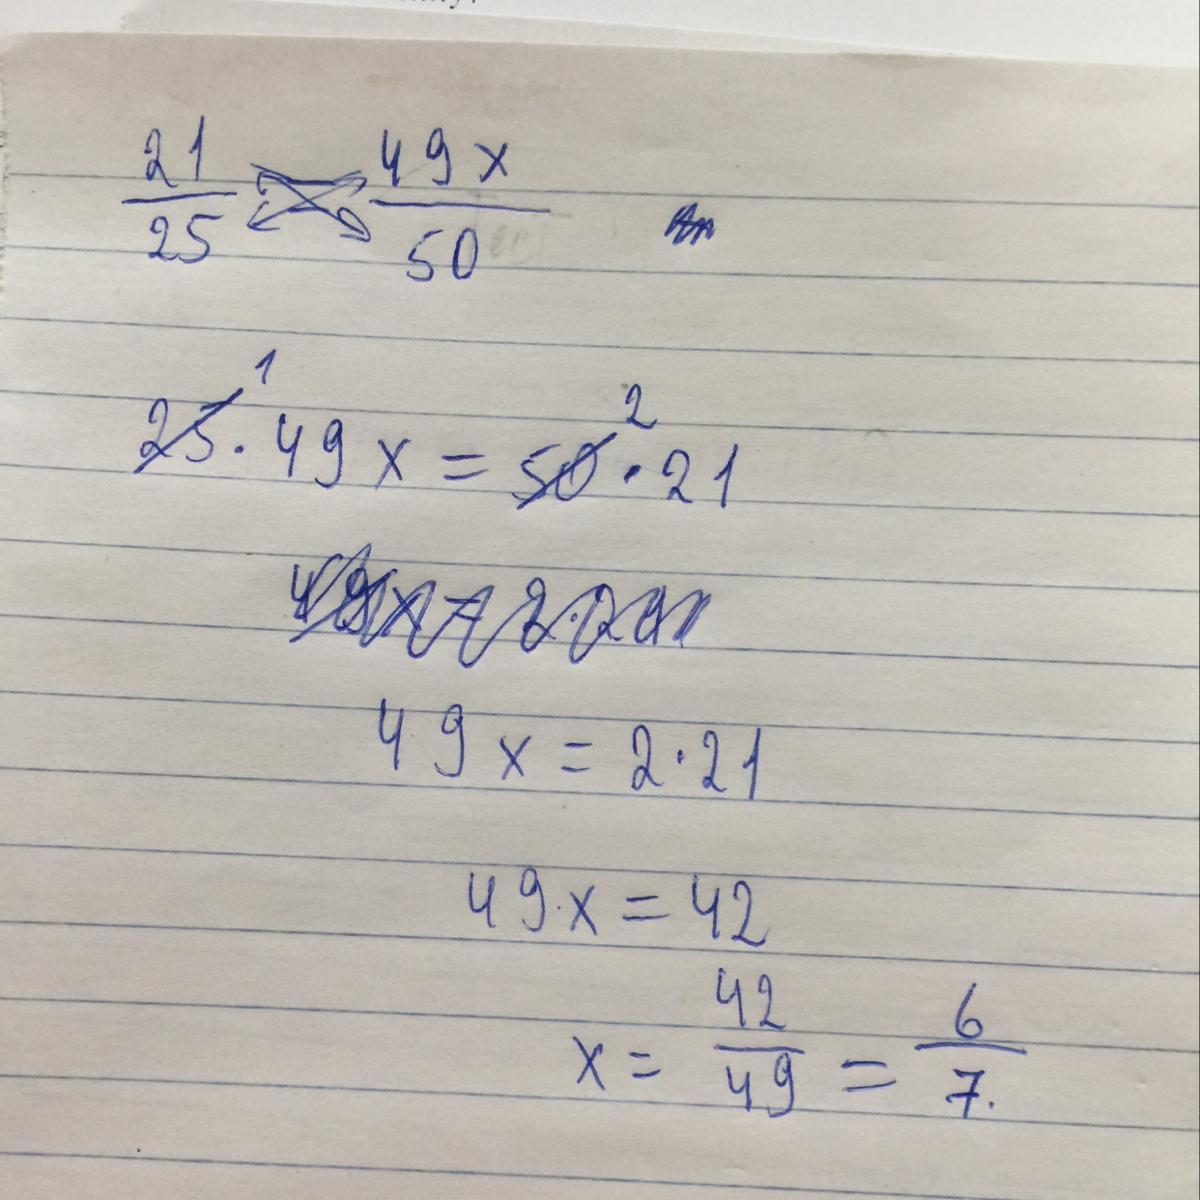 21/25 49x/50
25¹ · 49x = 50² · 21
49x = 2·21
49·x = 42
x = 42/49 = 6/7.